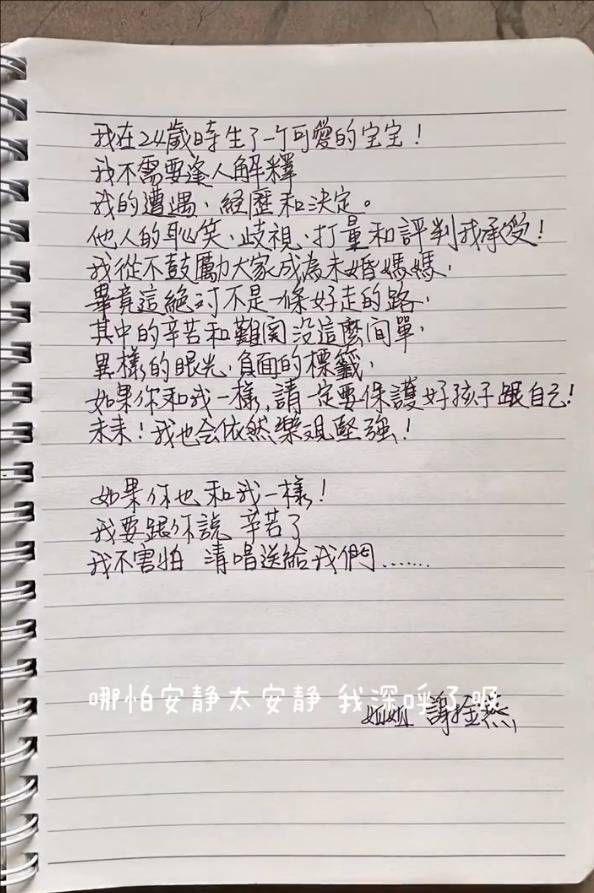 我在24歲時生了一个可愛的宝宝！
我不需要逢人解釋
我的遭遇，經歷和決定。
他人的恥笑、歧視、打量和評判我承受！
我從不鼓勵大家成為未婚媽媽，
畢竟這絕对不是一條好走的路，
其中的辛苦和難関没這麼简單，
異樣的眼光，負面的標籤，
如果你和我一樣，請一定要保護好孩子跟自己！
未来！我也会依然樂观堅强！
如果你也和我一樣！
我要跟你說 辛苦了
我不害怕 清唱送給我們……
哪怕安静太安静 我深呼了吸
謝